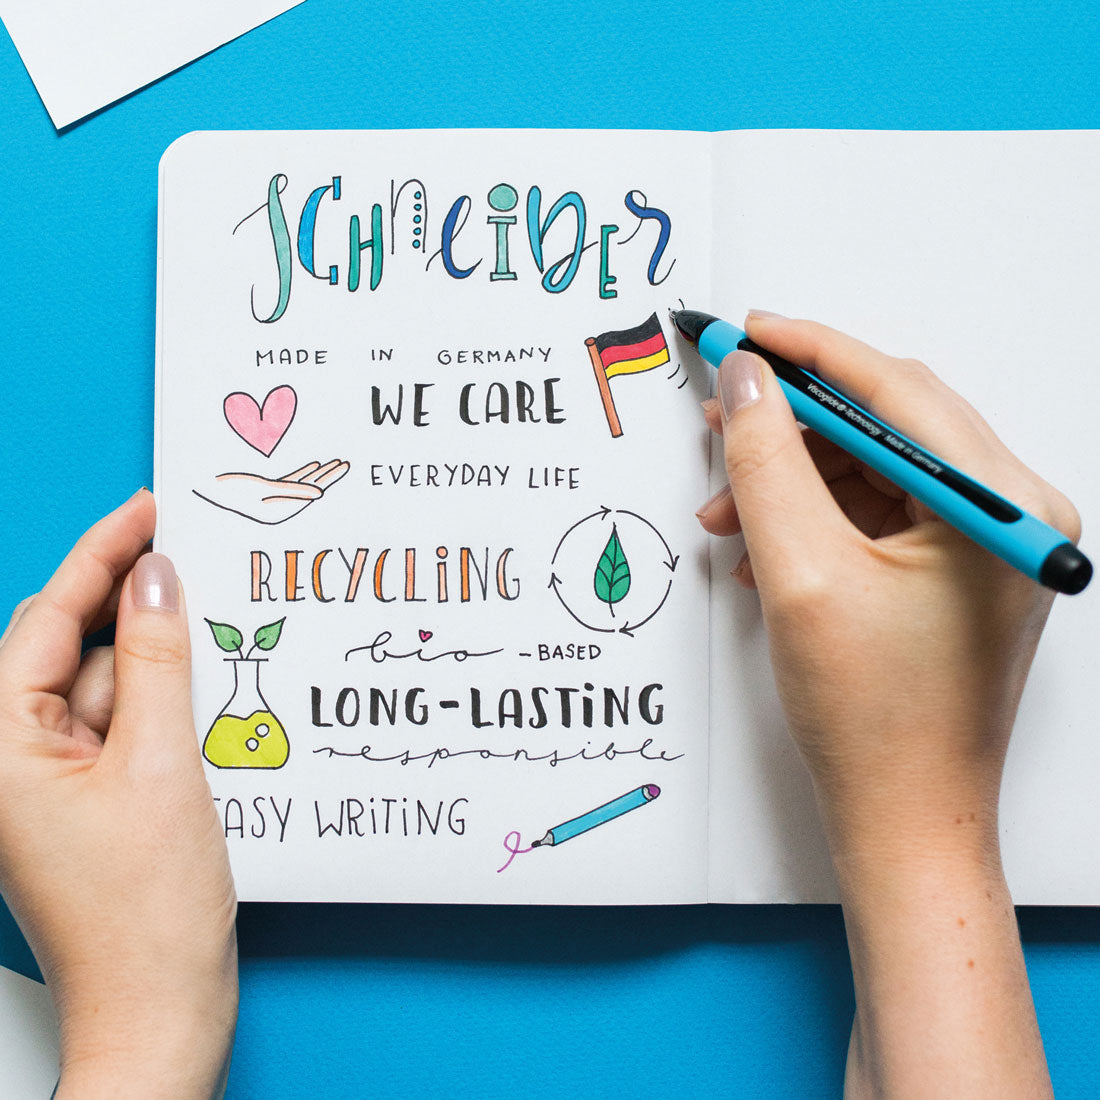 SCHneiDer
MADE IN GERMANY
WE CARE
EVERYDAY LIFE
RECYCLING
bio -BASED
LONG-LASTiNG
responsible
EASY WRiTiNG
Viscoglide®-Technology · Made in Germany